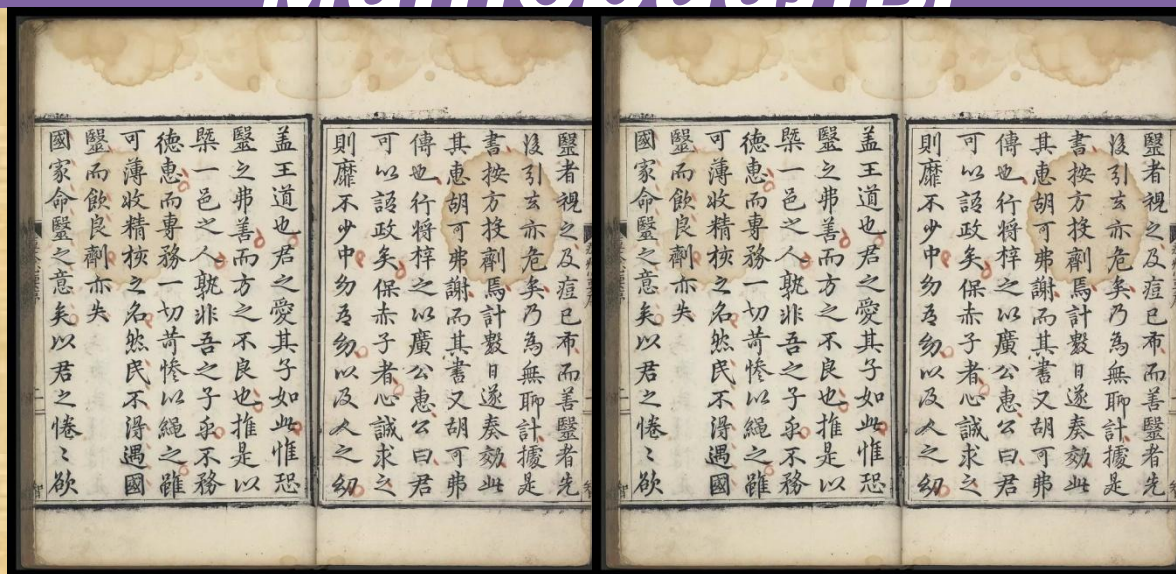 毉者視之及痘已布而善毉者先
後引玄亦危矣乃為無聊計據是
書按方投劑焉計數日遂奏効此
其惠胡可弗謝而其書又胡可弗
傳也行將梓之以廣公惠公曰君
可以語政矣保赤子者心誠求之
則靡不少中幼吾幼以及人之幼
盖王道也君之愛其子如此惟恐
毉之弗善而方之不良也推是以
槩一邑之人孰非吾之子乎不務
徳惠而專務一切苛惨以繩之雖
可薄收精核之名然民不得遇國
毉而飲良劑亦失
國家命毉之意矣以君之惓〻欲
毉者視之及痘已布而善毉者先
後引玄亦危矣乃為無聊計據是
書按方投劑焉計數日遂奏効此
其惠胡可弗謝而其書又胡可弗
傳也行將梓之以廣公惠公曰君
可以語政矣保赤子者心誠求之
則靡不少中幼吾幼以及人之幼
盖王道也君之愛其子如此惟恐
毉之弗善而方之不良也推是以
槩一邑之人孰非吾之子乎不務
徳惠而專務一切苛惨以繩之雖
可薄收精核之名然民不得遇國
毉而飲良劑亦失
國家命毉之意矣以君之惓〻欲